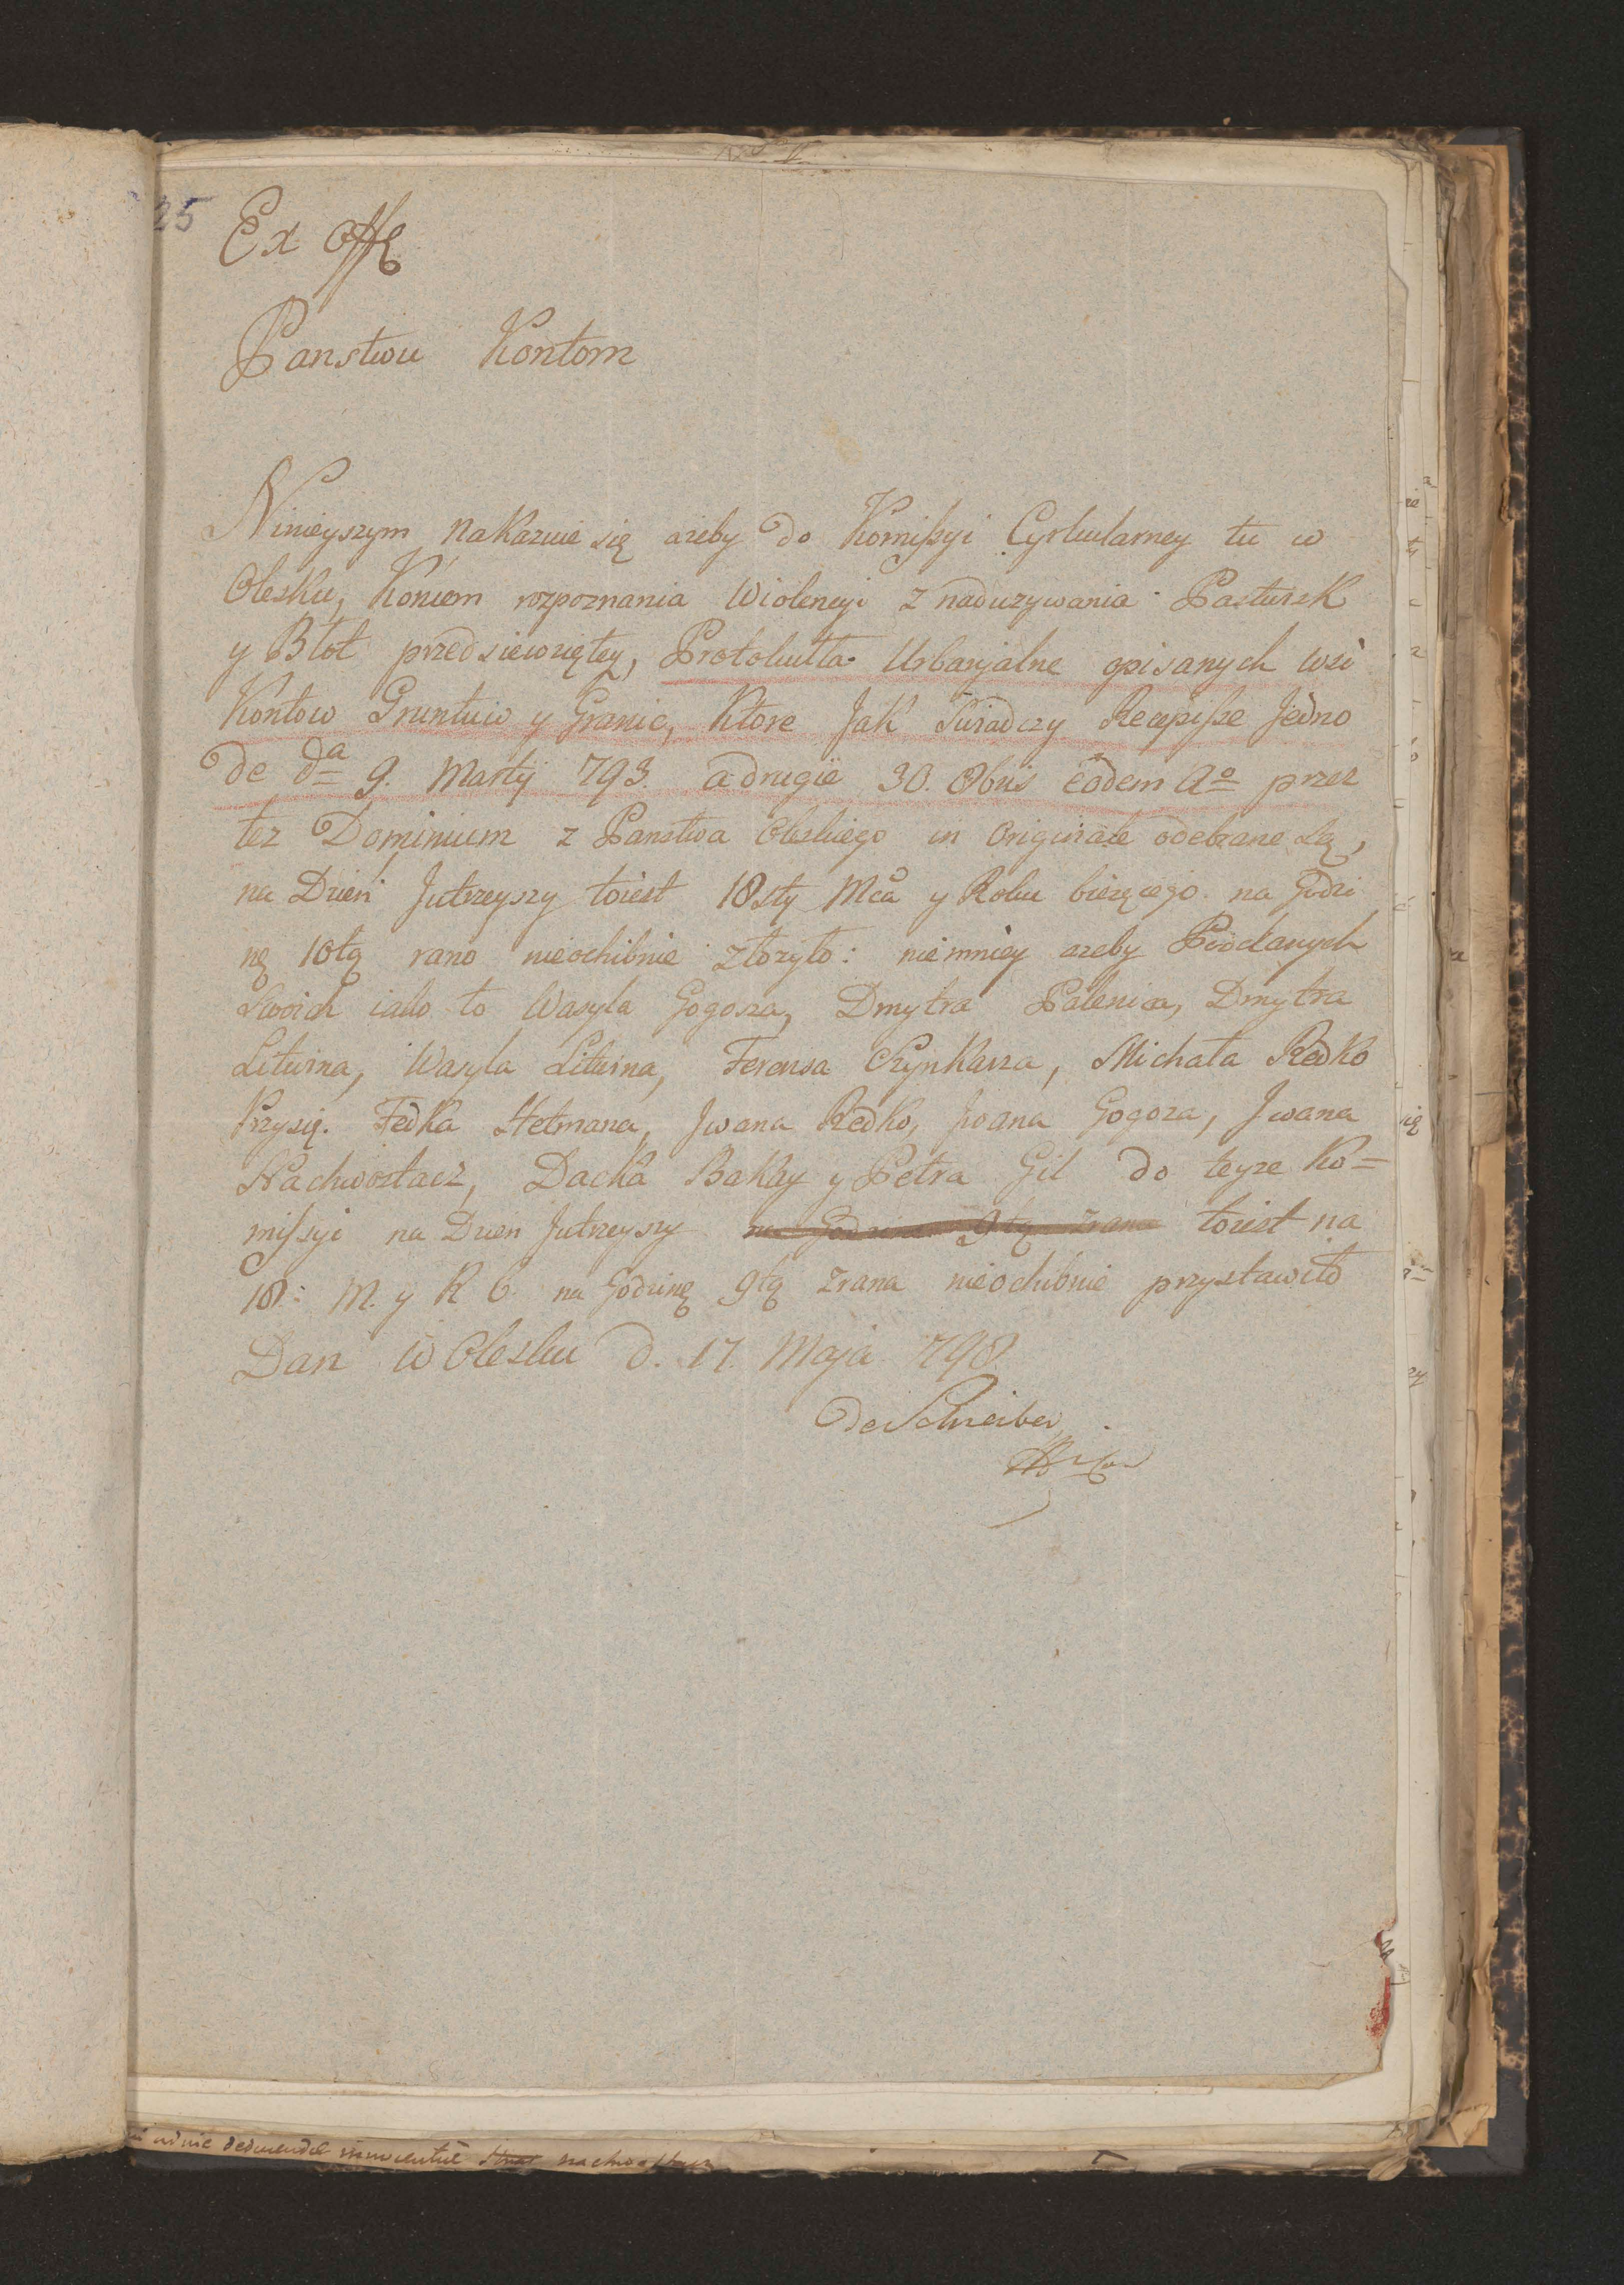 25
Ex Offo
Panstwu Kontom
Ninieyszym nakazuie się ażeby do Komißyi Cyrkularney tu w
Olesku, Koncem rozpoznania Wiolencyi z naduzywania Pastwisk
y Błot przedsiewziętey, Protokułła Urbaryalne opisanych wsi
Kontow Gruntuw y Granic, Ktore Jak Swiadczy Recepiße Jedno
de da 9. Martij 793. a drugie 30. 8bris eodem Ao przez
tez Dominium z Panstwa Oleskiego in Originale odebrane Są,
na Dzien Jutrzeyszy toiest 18sty Mca y Roku bieżącego na Godzi
nę 10tą rano nieochibnie złozyło: niemniey azeby Poddanych
Swoich iako to Wasyla Gogosza, Dmytra Palenica, Dmytra
Litwina, Wasyla Litwina, Ferensa Szynkarza, Michała Redko
Przysię. Fedka Hetmana, Jwana Redko, Jwana Gogoza, Jwana
Nachwostacz, Dacka Bakay y Petra Gil do teyze Ko=
mißyi na Dzien Jutrzeyszy na Godzine 9tą zrana toiest na
18: M. y R b na Godzinę 9tą zrana nieochibnie przystawiło
Dan w Olesku d. 17. Maja 798.
de Schreiber